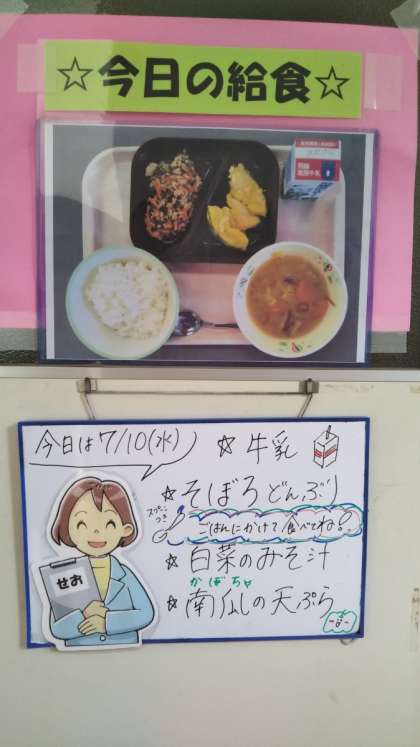 ☆今日の給食☆
今日は7/10(水)
☆ 牛乳
☆ そぼろどんぶり
スプーンつき
ごはんにかけて食べてね!
☆ 白菜のみそ汁
かぼちゃ
☆ 南瓜の天ぷら
せお